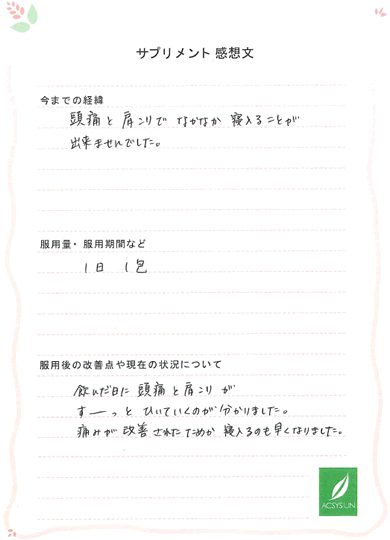 サプリメント 感想文
今までの経緯
頭痛と肩こりで なかなか 寝入ることが
出来ませんでした。
服用量・服用期間など
1日 1包
服用後の改善点や現在の状況について
飲んだ日に 頭痛と肩こりが
すーっと ひいていくのが分かりました。
痛みが 改善されたためか 寝入るのも早くなりました。
ACSYSUN